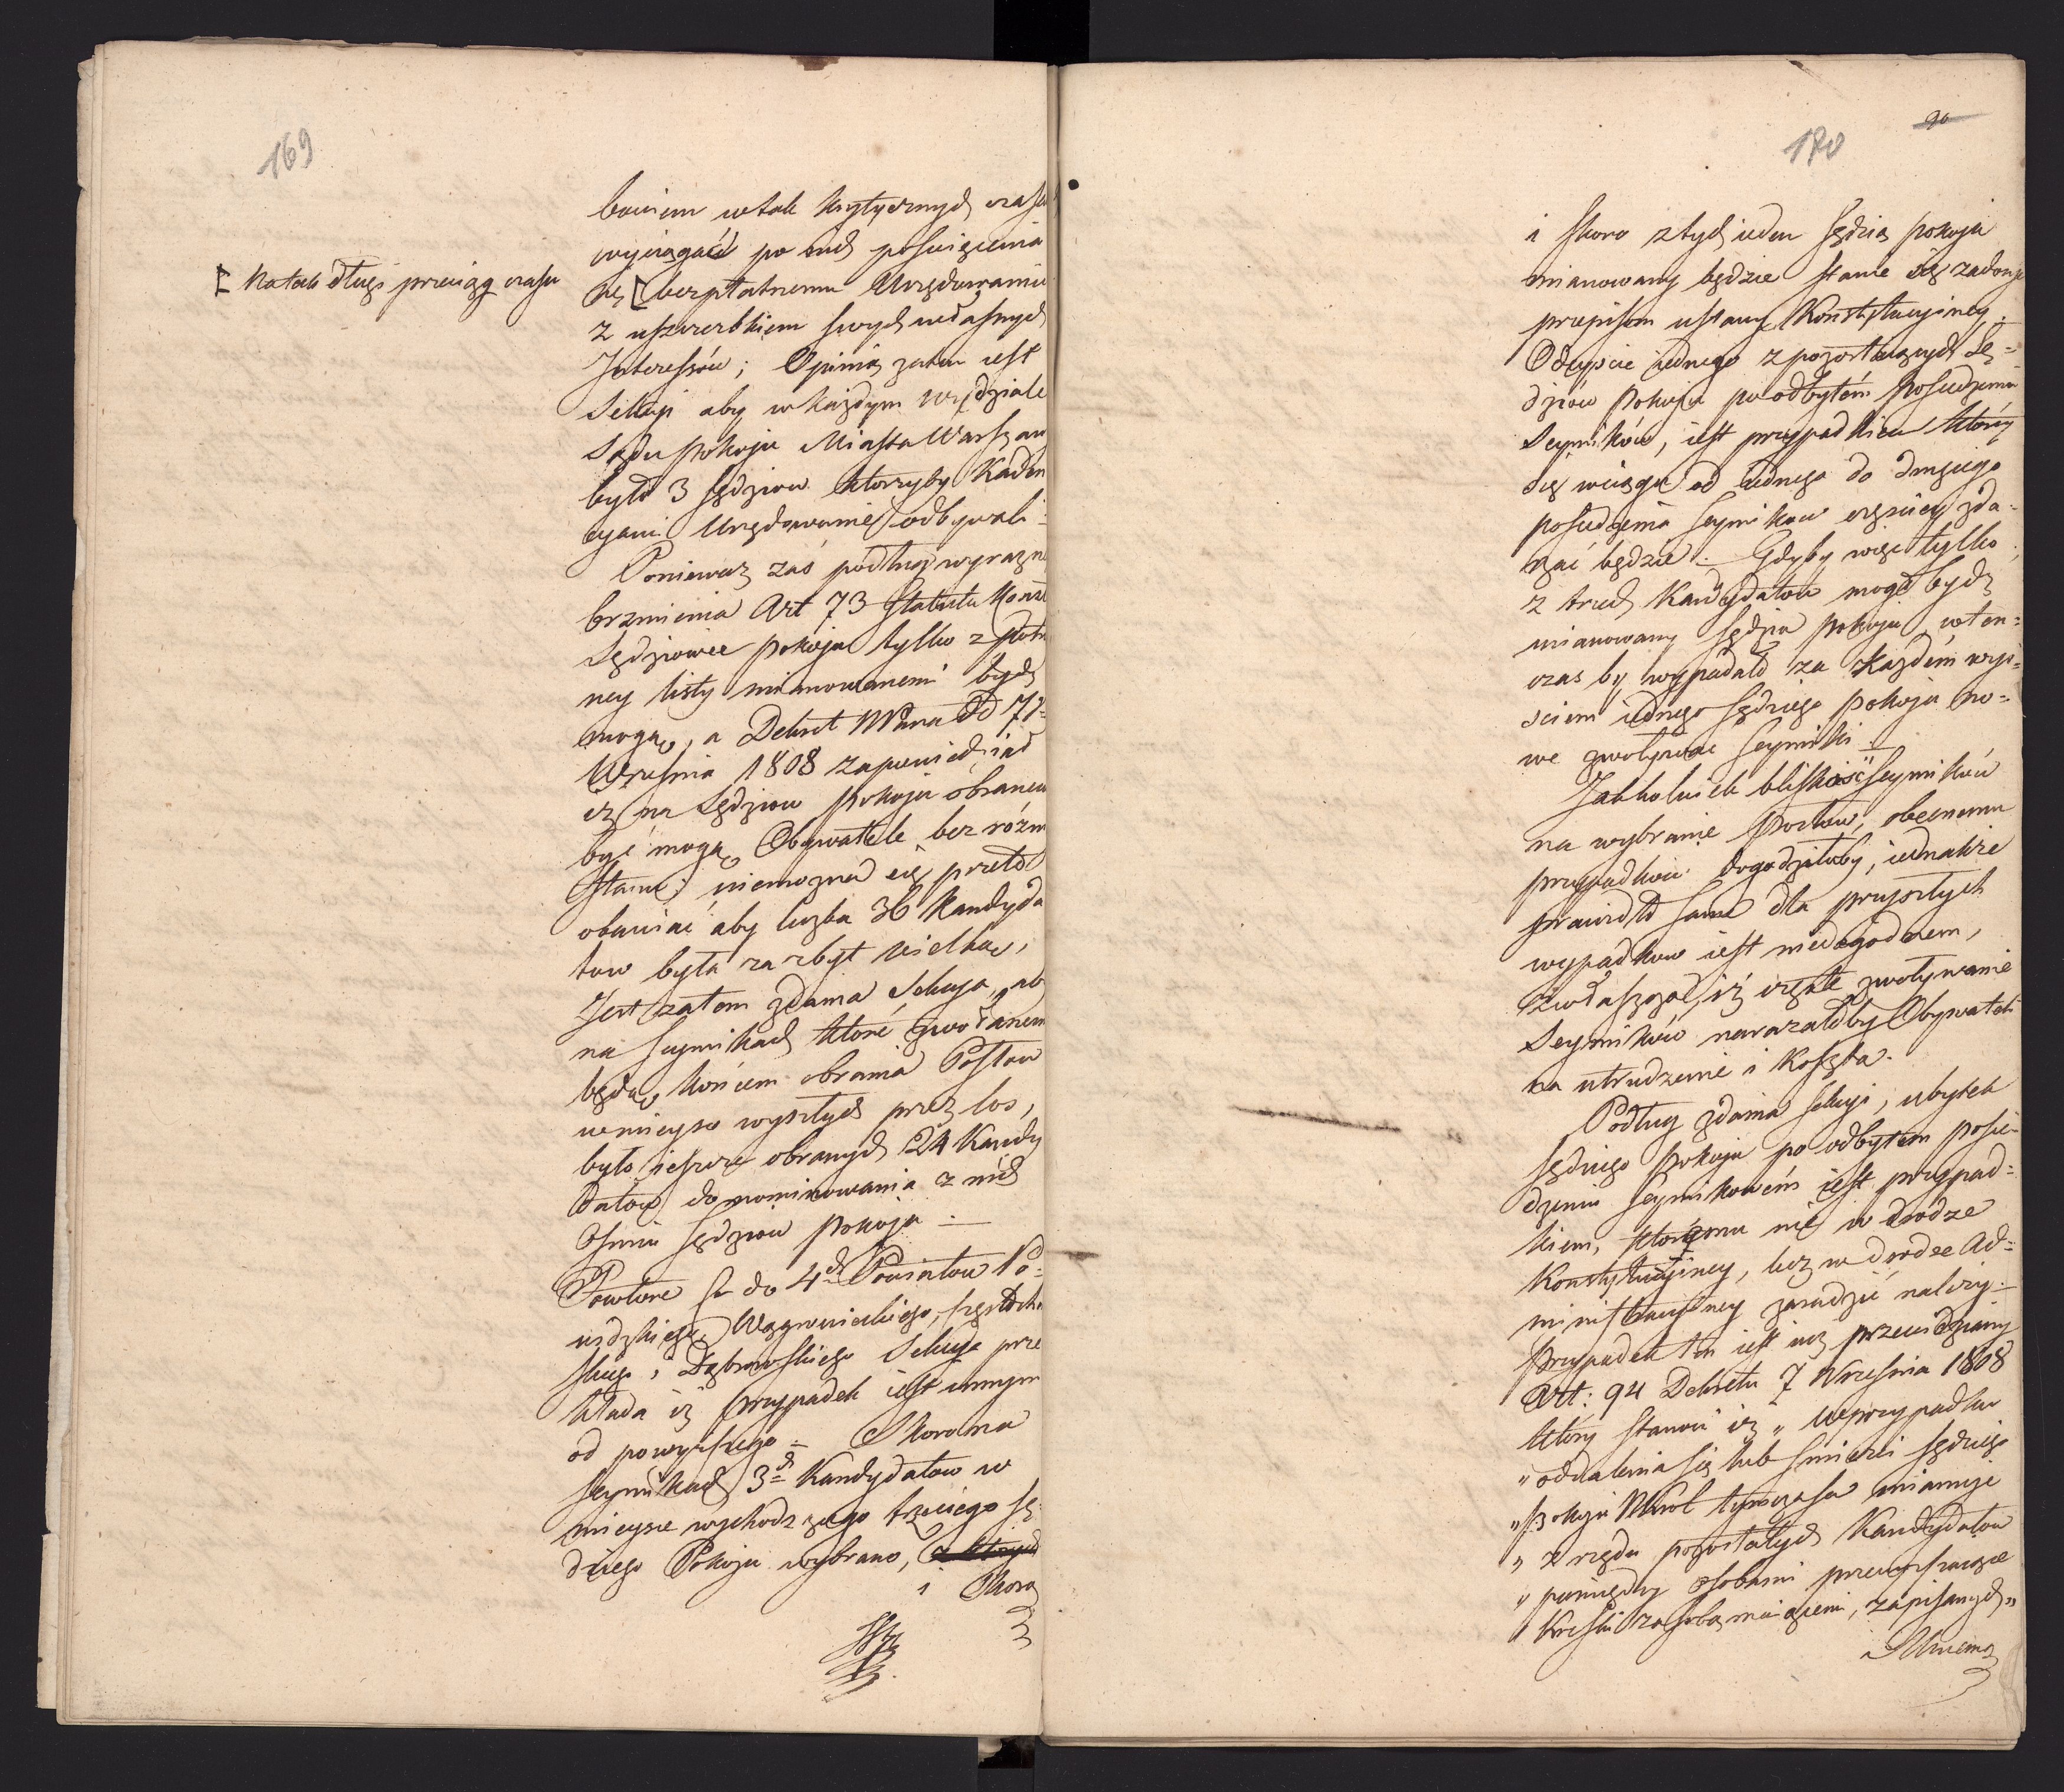 169
bowiem w tak krytycznych czasach
wyciągać po nich poświęcenia
się [ bezpłatnemu Urzędowaniu
[ na tak długi przeciąg czasu
z uszczerbkiem swych własnych
Interessów; Opinią zatem iest
Sekcyi aby w każdym wydziale
Sądu Pokoju Miasta Warszaw
było 3 Sędziow ktorzyby Kaden
cyami Urzędowanie odbywali.
Poniewaz zaś podług wyrazne
brzmienia Art 73 Statutu Konst
Sędziowie pokoju tylko z potró
ney listy mianowanemi bydź
mogą, a Dekret NPana od 7go
Wrzesnia 1808 zapowiedział
iz na Sędziow Pokoju obranemi
być mogą Obywatele bez rozni
Stanu; niemozna się przeto
obawiać aby liczba 36 Kandyda
tow była zazbyt wielka,
Jest zatem zdania Sekcya, ab
na Seymikach które zwołanem
będą końcem obrania Posłow
w mieysce wyszłych przez los,
było ieszcze obranych 24 Kandy
datow do nominowania z nich
ośmiu Sędziow Pokoju.
Powtore co do 4ch Powiatow Po=
widzkiego, Wągrowieckiego, Częstocho
skiego i Dąbrowskiego Sekcya prze
kłada iż przypadek iest innym
od powyższego. Skoro na
Seymikach 3ch Kandydatow w
mieysce wychodzącego trzeciego Sę=
dziego Pokoju wybrano, z ktorych
i Skoro
90
170
i skoro z tych ieden Sędzią pokoju
mianowany będzie stanie się zadosyć
przepisom ustawy Konstytucyiney.
Odeyście iednego z pozostaiących Sę=
dziow Pokoju po odbytém posiedzeniu
Seymików, iest przypadkiem który
się w ciągu od iednego do drugiego
posiedzenia Seymikow częściey zda=
rzać będzie. Gdyby więc tylko
z trzech Kandydatow mogł bydź
mianowany Sędzia pokoju, wten=
czas by wypadało za każdém wyi=
ściem iednego Sędziego Pokoju no=
we zwoływać Seymiki.
Jakkolwiek bliskość Seymików
na wybranie Posłow, obecnemu
przypadkowi dogodziłaby, iednakże
prawidło samo dla przyszłych
wypadkow iest niedogodnem,
zwłaszcza, iż częste zwoływanie
Seymików narazałoby Obywateli
na utrudzenie i koszta.
Podług zdania Sekcyi, ubytek
Sędziego Pokoju po odbytem posie=
dzeniu Seymikowém iest przypad=
kiem, ktoremu nie w drodze
Konstytucyiney, lecz w drodze Ad=
ministracyiney zaradzić nalezy.
Przypadek ten iest iuz przewidziany
Art: 94 Dekretu 7 Wrzesnia 1808
który stanowi iz „ w przypadku
„ oddalenia się lub śmierci Sędziego
„ Pokoju NKrol tymczasa mianuje
„ z rzędu pozostałych Kandydatow
„ pomiędzy osobami przewyższaiące
„ kreski za sobą maiącemi, zapisanych„
Mniema